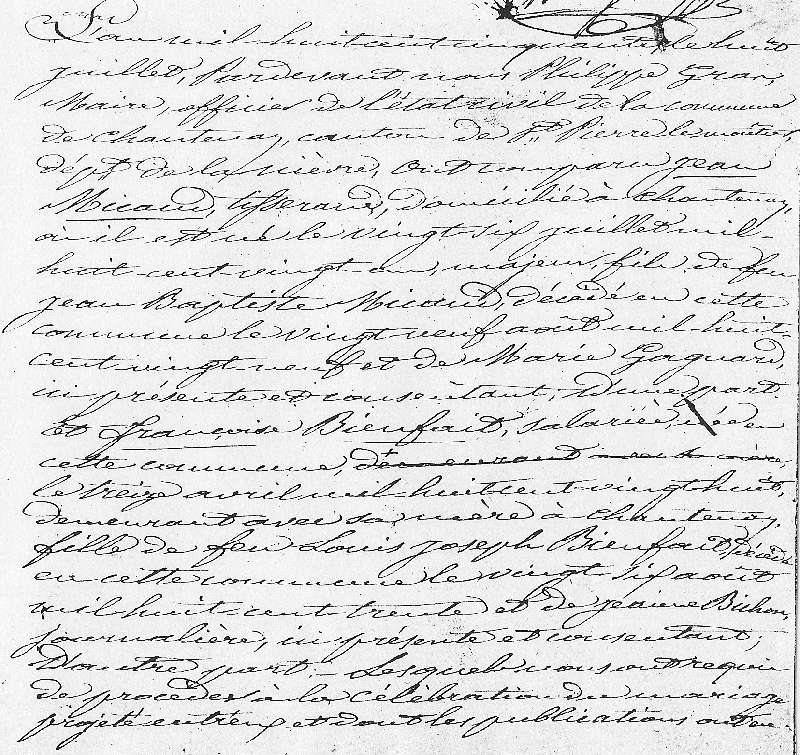 L'an mil-huit cent cinquante, le huit
juillet, Pardevant nous Philippe Gran,
Maire, officier de l'état civil de la commune
de chantenay, canton de St. Pierre le moûtier,
dépt. de la nièvre, ont comparu Jean
Micaud, tisserand, domicilié à chantenay,
où il est né le vingt six juillet mil-
huit-cent-vingt-un, majeur, fils de feu
jean Baptiste Micaud, décédé en cette
commune le vingt neuf août mil-huit-
cent vingt neuf et de Marie Gagnard,
ici présente et consentant; D'une part.
Et Françoise Bienfait, salariée, née en
cette commune, demeurant avec sa mère,
le treize avril mil-huit cent vingt huit,
demeurant avec sa mère à chantenay,
fille de feu Louis joseph Bienfait, décédé
en cette commune le vingt six août
mil huit-cent-trente et de jeanne Bichon,
journalière, ici présente et consentant;
D'autre part.- Lesquels nous ont requis
de procéder à la célébration du mariage
projeté entr'eux et dont les publications ont eu